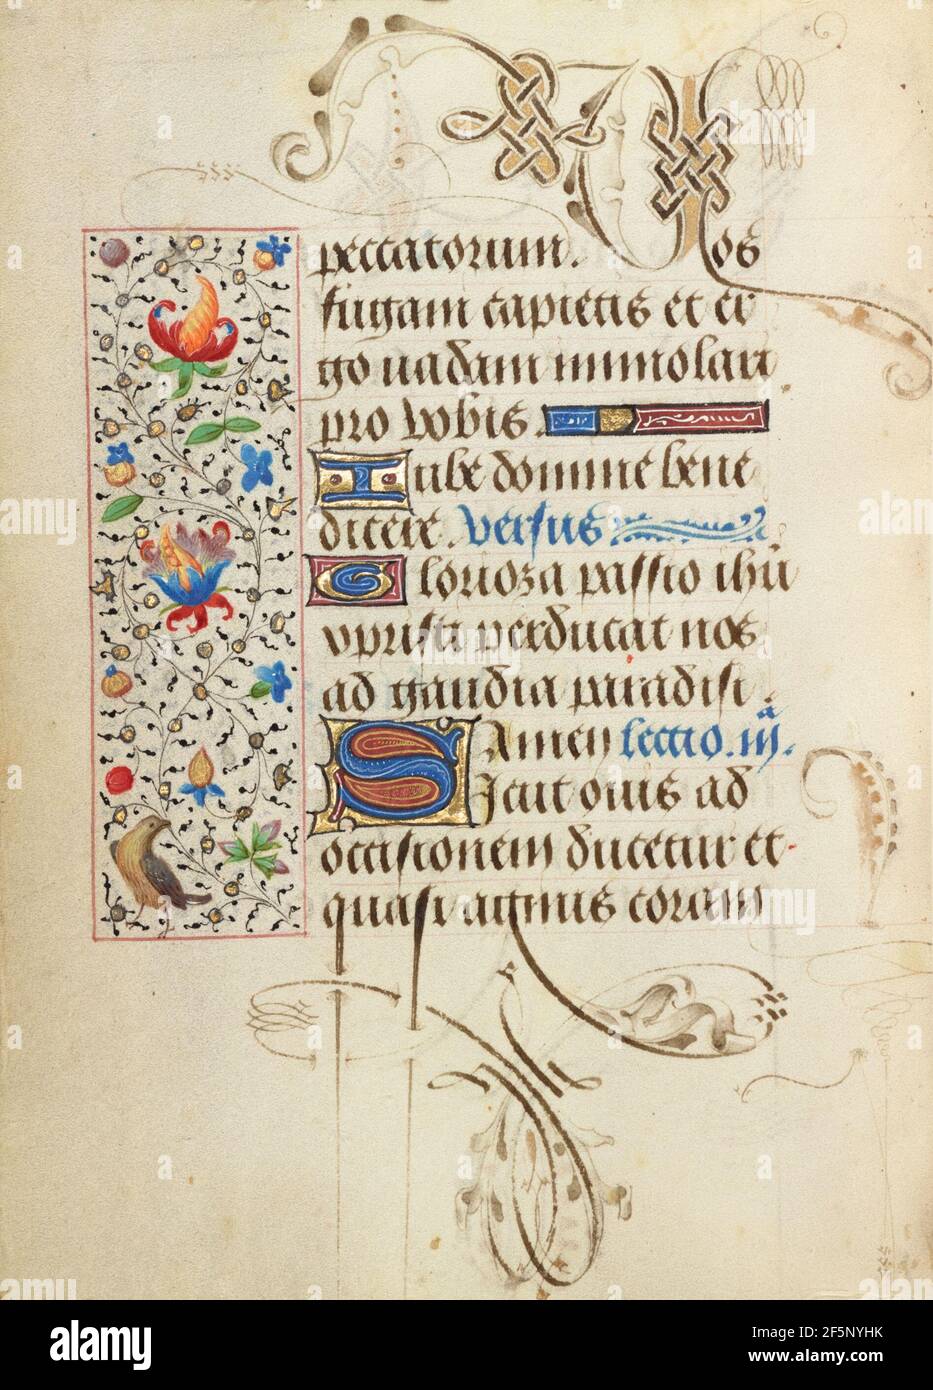 peccatorum. Vos
fugam capietis et er
go vadam immolari
pro vobis.
Iube domine bene
dicere. versus
Glorioza passio ihu
xpristi perducat nos
ad gaudia paradisi.
Amen lectio. iij.a
Sicut ovis ad
occisionem ducetur et
quasi agnus coram
alamy
Image ID: 2F5NYHK
www.alamy.com